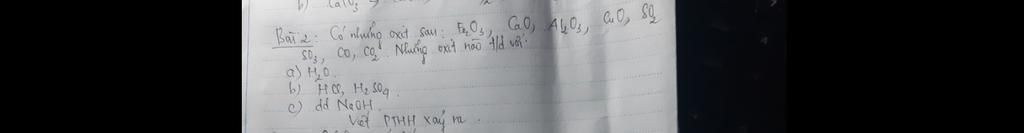 b) CaCO3 →
Bài 2: Có những oxit sau: Fe2O3, CaO, Al2O3, CuO, SO2
SO3, CO, CO2. Những oxit nào t/d với:
a) H2O.
b) HCl, H2SO4.
c) dd NaOH.
Viết PTHH xảy ra.